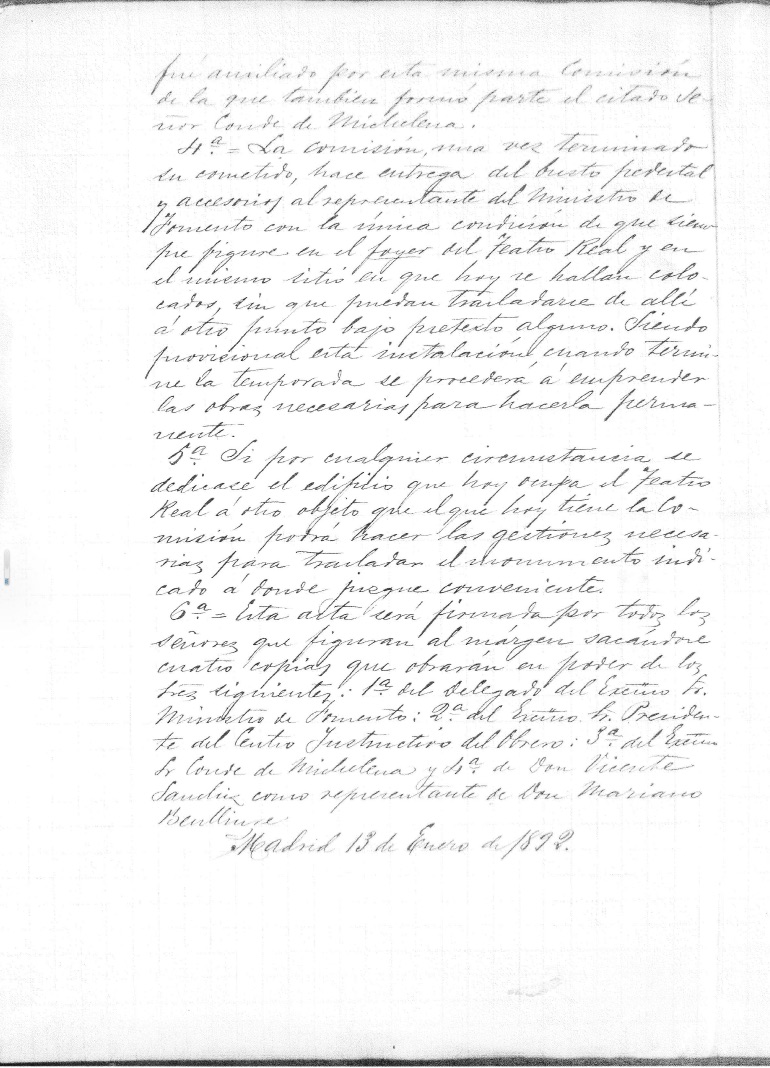 fué auxiliado por esta misma Comisión
de la que tambien formó parte el citado Se-
ñor Conde de Michelena.
4ª = La comisión, una vez terminado
su cometido, hace entrega del busto pedestal
y accesorios al representante del Ministro de
Fomento con la única condición de que siem-
pre figure en el foyer del Teatro Real y en
el mismo sitio en que hoy se hallan colo-
cados, sin que puedan trasladarse de allí
á otro punto bajo pretesto alguno. Siendo
provisional esta instalación, cuando termi-
ne la temporada se procederá á emprender
las obras necesarias para hacerla perma-
nente.
5ª Si por cualquier circunstancia se
dedicase el edificio que hoy ocupa el Teatro
Real á otro objeto que el que hoy tiene la Co-
misión podrá hacer las gestiones necesa-
rias para trasladar el monumento indi-
cado á donde juzgue conveniente.
6ª = Esta acta será firmada por todos los
señores que figuran al márgen sacándose
cuatro copias que obrarán en poder de los
tres siguientes: 1ª del Delegado del Excmo Sr.
Ministro de Fomento: 2ª del Excmo. Sr. Presiden-
te del Centro Instructivo del Obrero: 3ª del Excmo
Sr Conde de Michelena y 4ª de Don Vicente
como representante de Don Mariano
Benlliure
Madrid 13 de Enero de 1892.